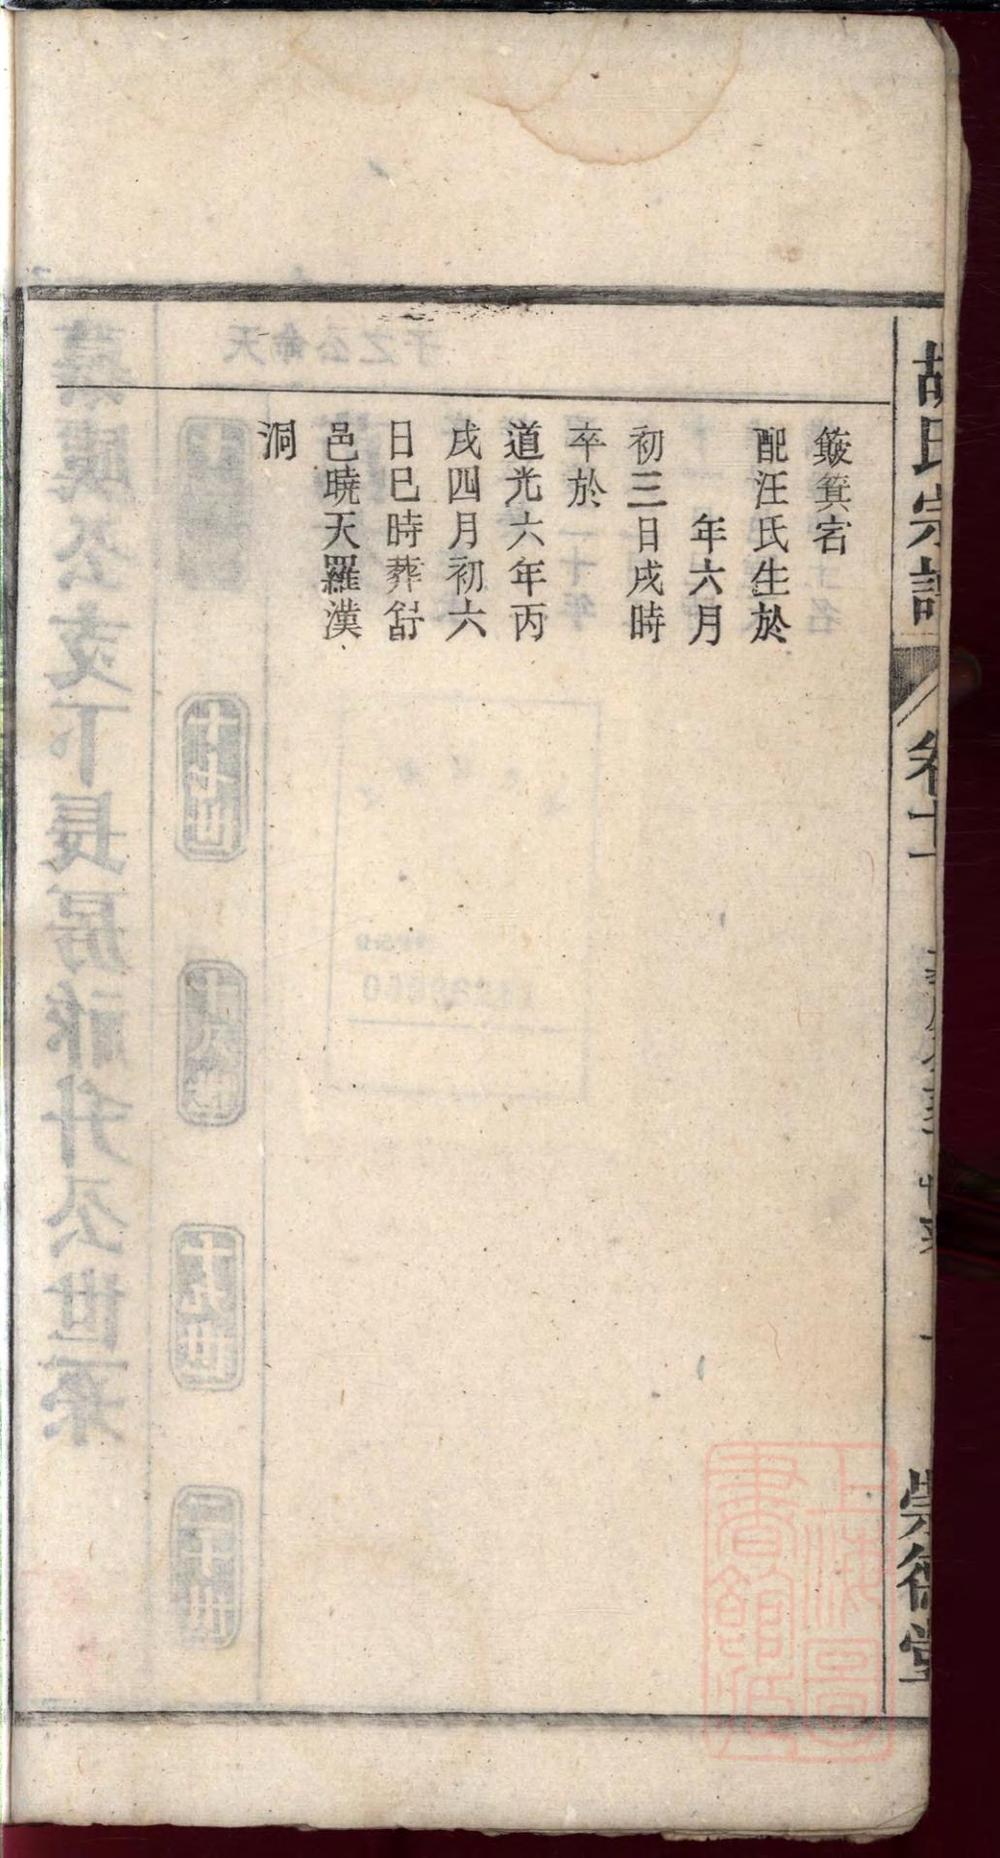 胡氏宗譜
卷十一
崇德堂
簸箕宕
配汪氏生於
年六月
初三日戌時
卒於
道光六年丙
戌四月初六
日巳時葬舒
邑曉天羅漢
洞
上海圖
書館藏